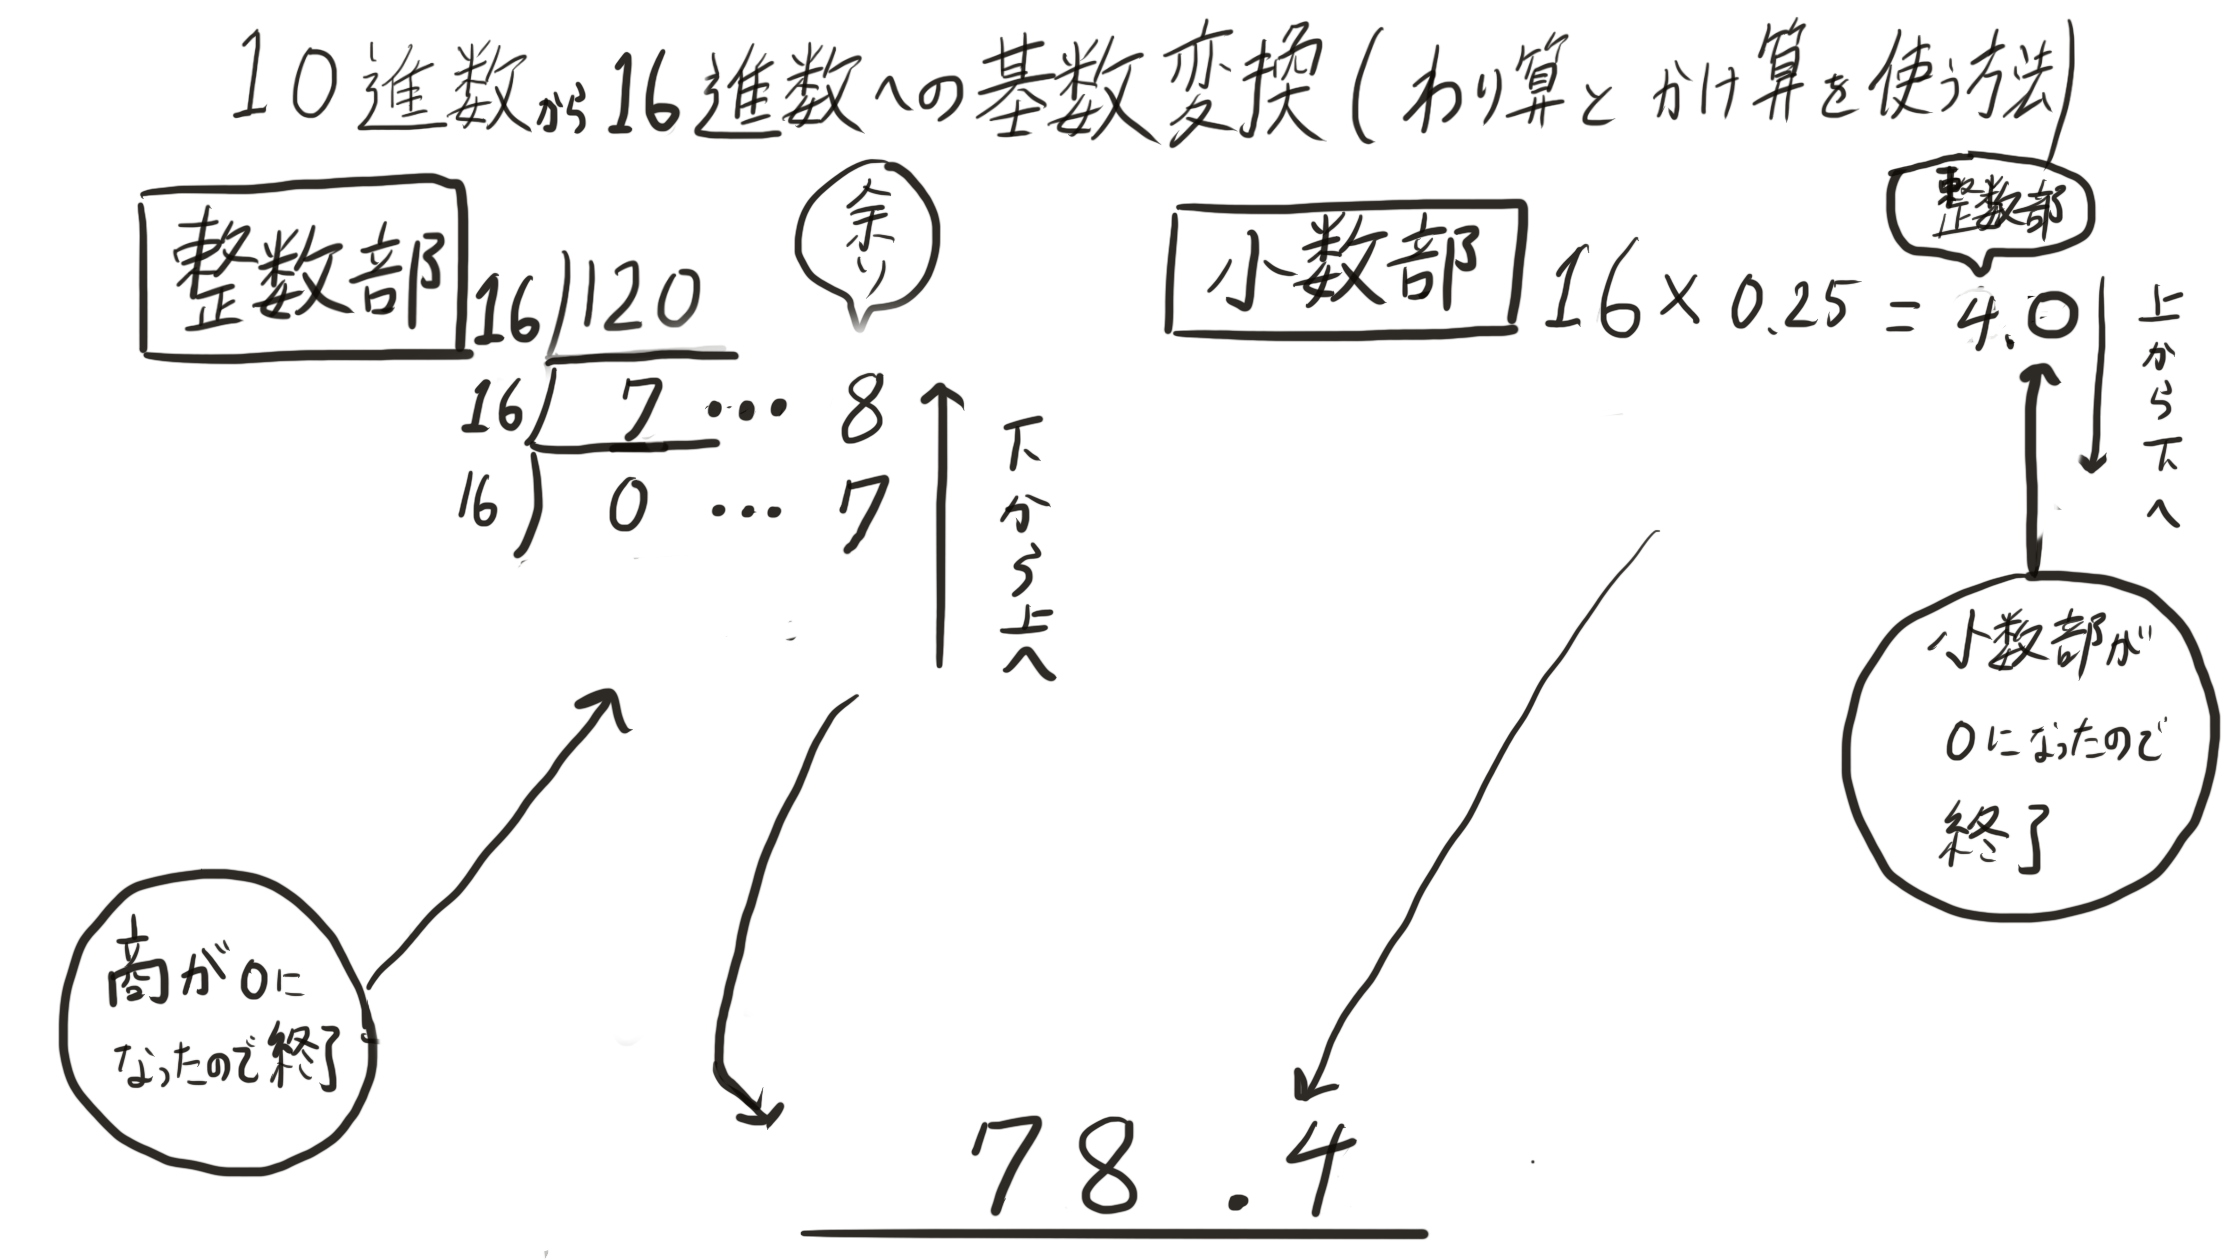 10進数から16進数への基数変換(わり算とかけ算を使う方法)
整数部
16)120
余り
16)7…8
16)0…7
下から上へ
商が0に
なったので終了
小数部
16×0.25=4.0
整数部
上から下へ
小数部が
0になったので
終了
78.4